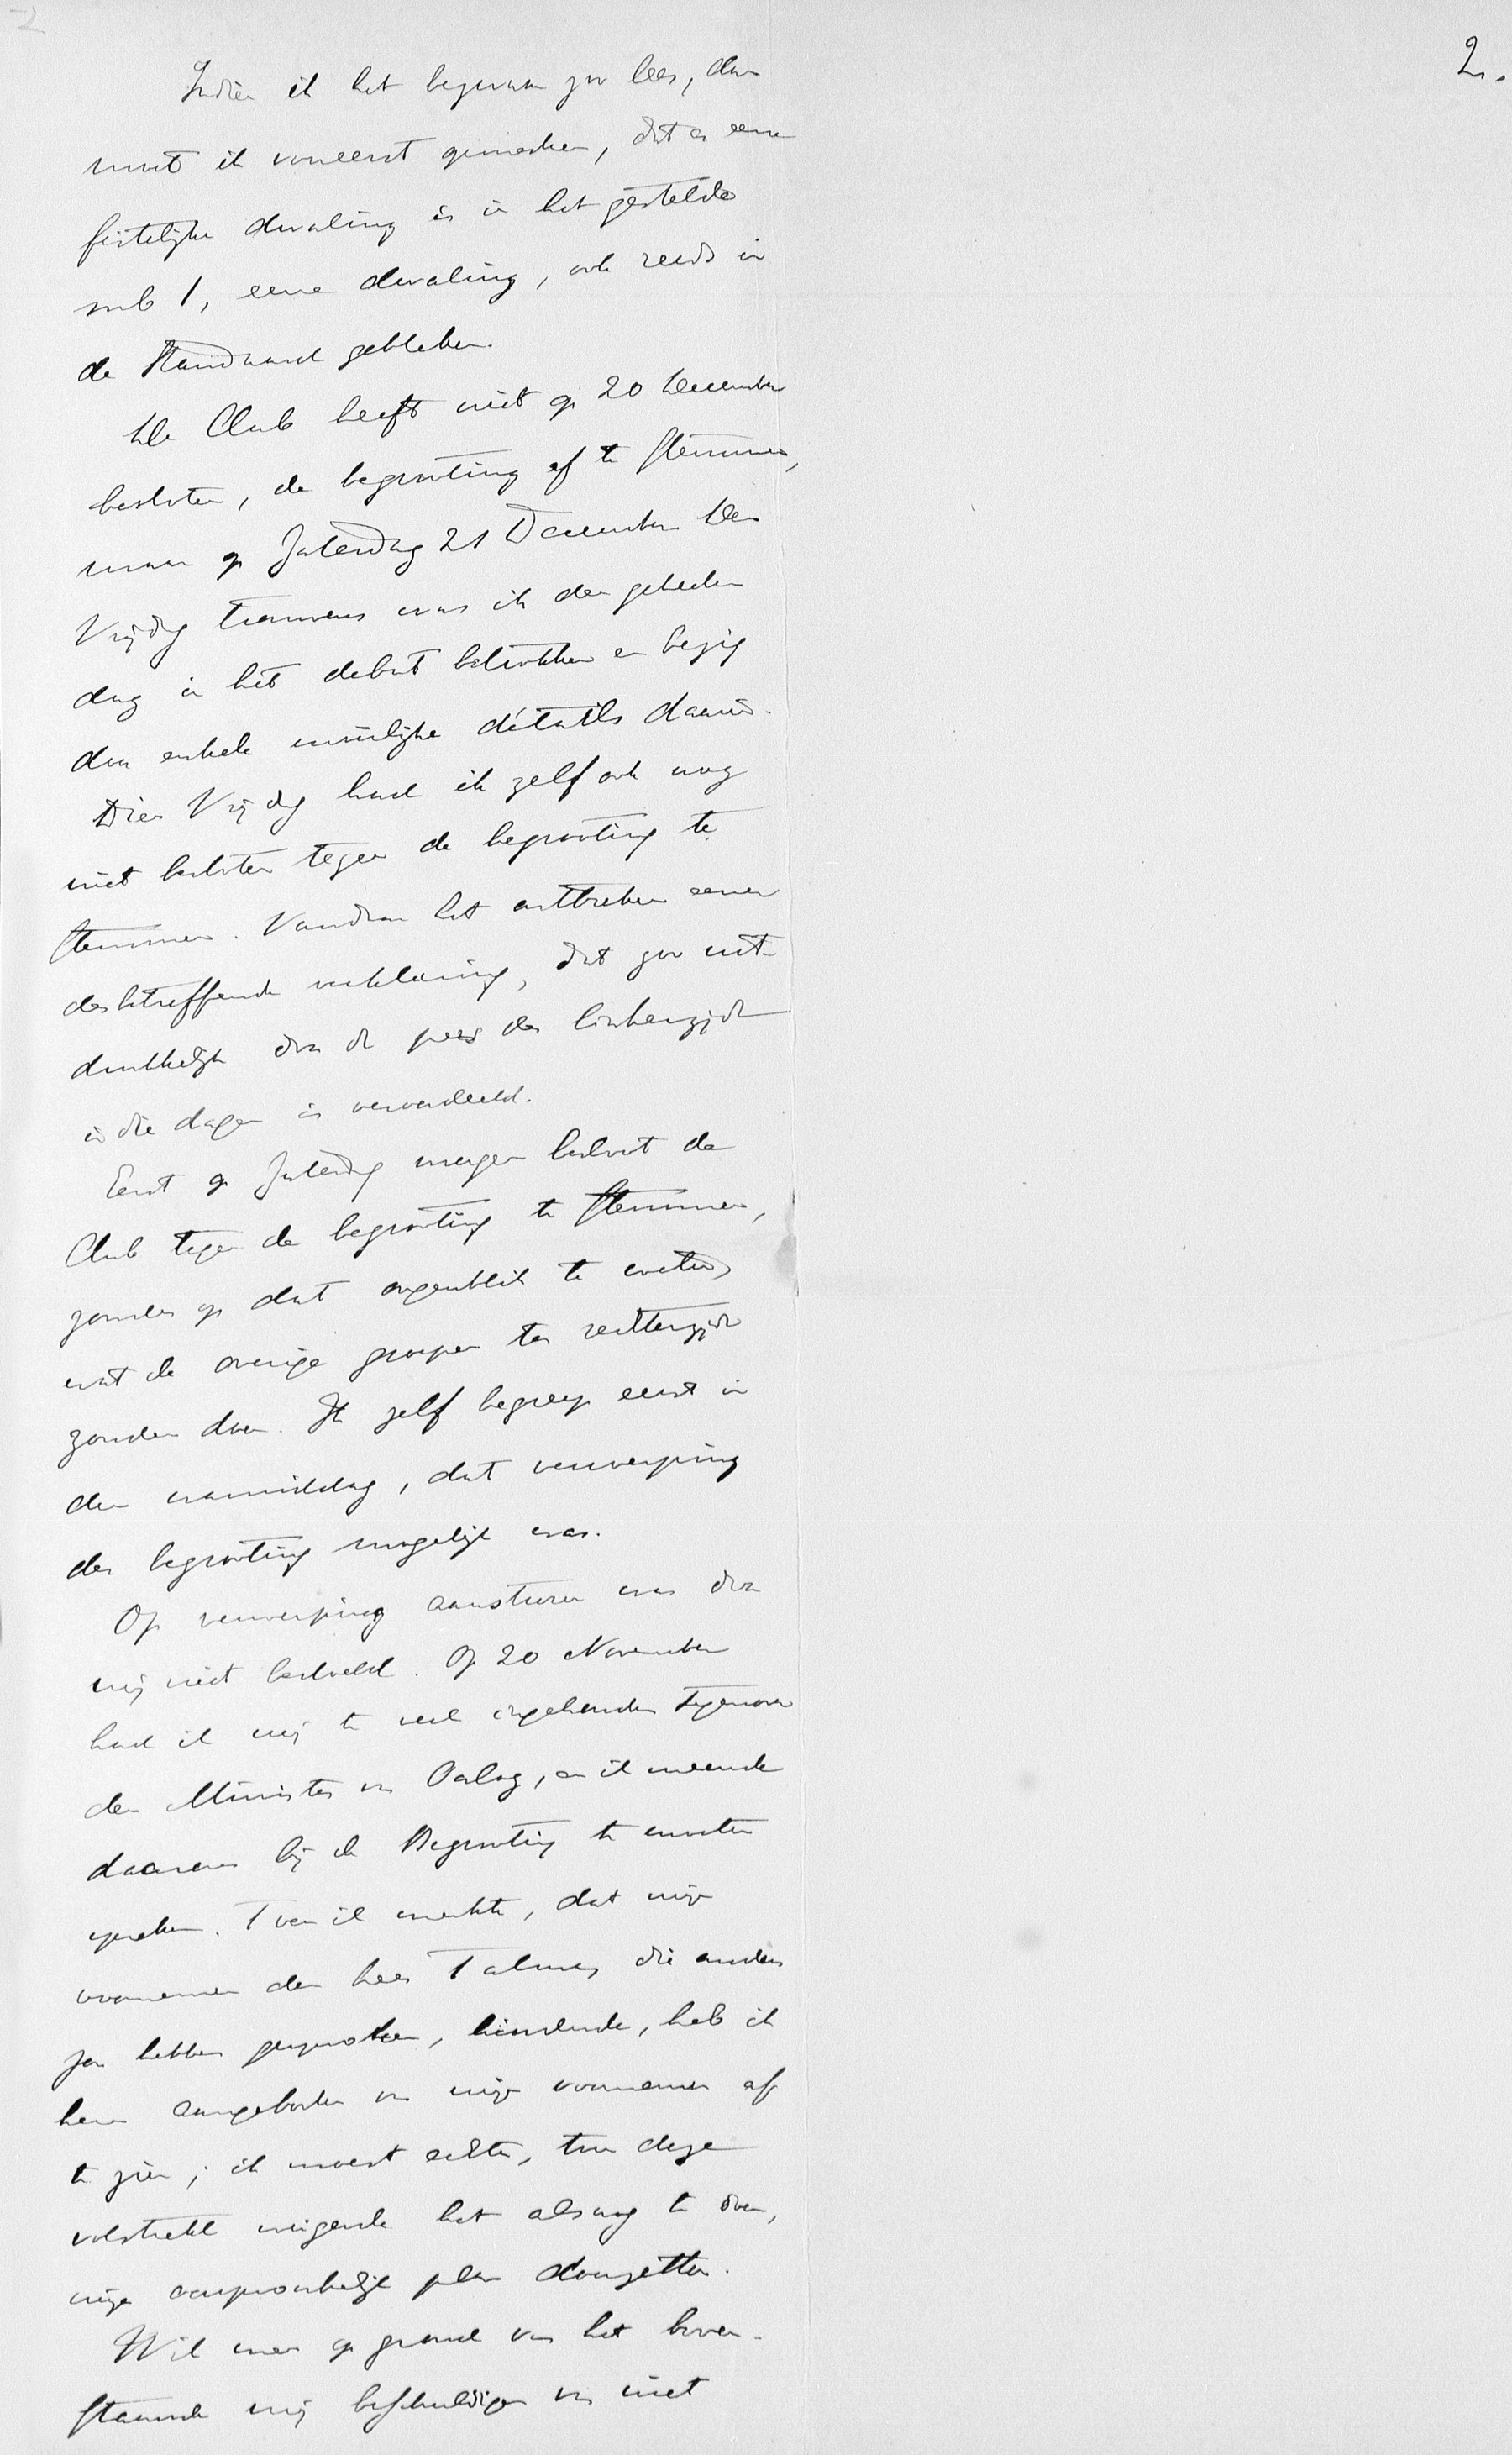 2.
Indien ik het bezwaar zoo lees, dan
moet ik vooreerst opmerken, dat er eene
feitelijke dwaling is in het gestelde
sub 1, eene dwaling, ook reeds in
de Standaard gebleken.
De Club heeft niet op 20 December
besloten, de begrooting af te stemmen,
maar op Zaterdag 21 December. Den
Vrijdag trouwens was ik den geheelen
dag in het debat betrokken en bezig
door enkele moeilijke détails daarin.
Dien Vrijdag had ik zelf ook nog
niet besloten tegen de begrooting te
stemmen. Vandaar het ontbreken eener
desbetreffende verklaring, dat zoo uit-
drukkelijk door de pers der linkerzijde
in die dagen is veroordeeld.
Eerst op Zaterdag morgen besloot de
Club tegen de begrooting te stemmen,
zonder op dat oogenblik te weten,
wat de overige groepen ter rechterzijde
zouden doen. Ik zelf begreep eerst in
den namiddag, dat verwerping
der begrooting mogelijk was.
Op verwerping aansturen was door
mij niet bedoeld. Op 20 November
had ik mij te veel ingehouden tegenover
den Minister van Oorlog, en ik meende
daarover bij de Begrooting te moeten
spreken. Toen ik merkte, dat mijn
voornemen den heer Talma, die anders
zou hebben gesproken, hinderde, heb ik
hem aangeboden van mijn voornemen af
te zien; ik moest echter, toen deze
volstrekt weigerde het alsnog te doen,
mijn oorspronkelijk plan doorzetten.
Wil men op grond van het boven-
staande mij beschuldigen van niet